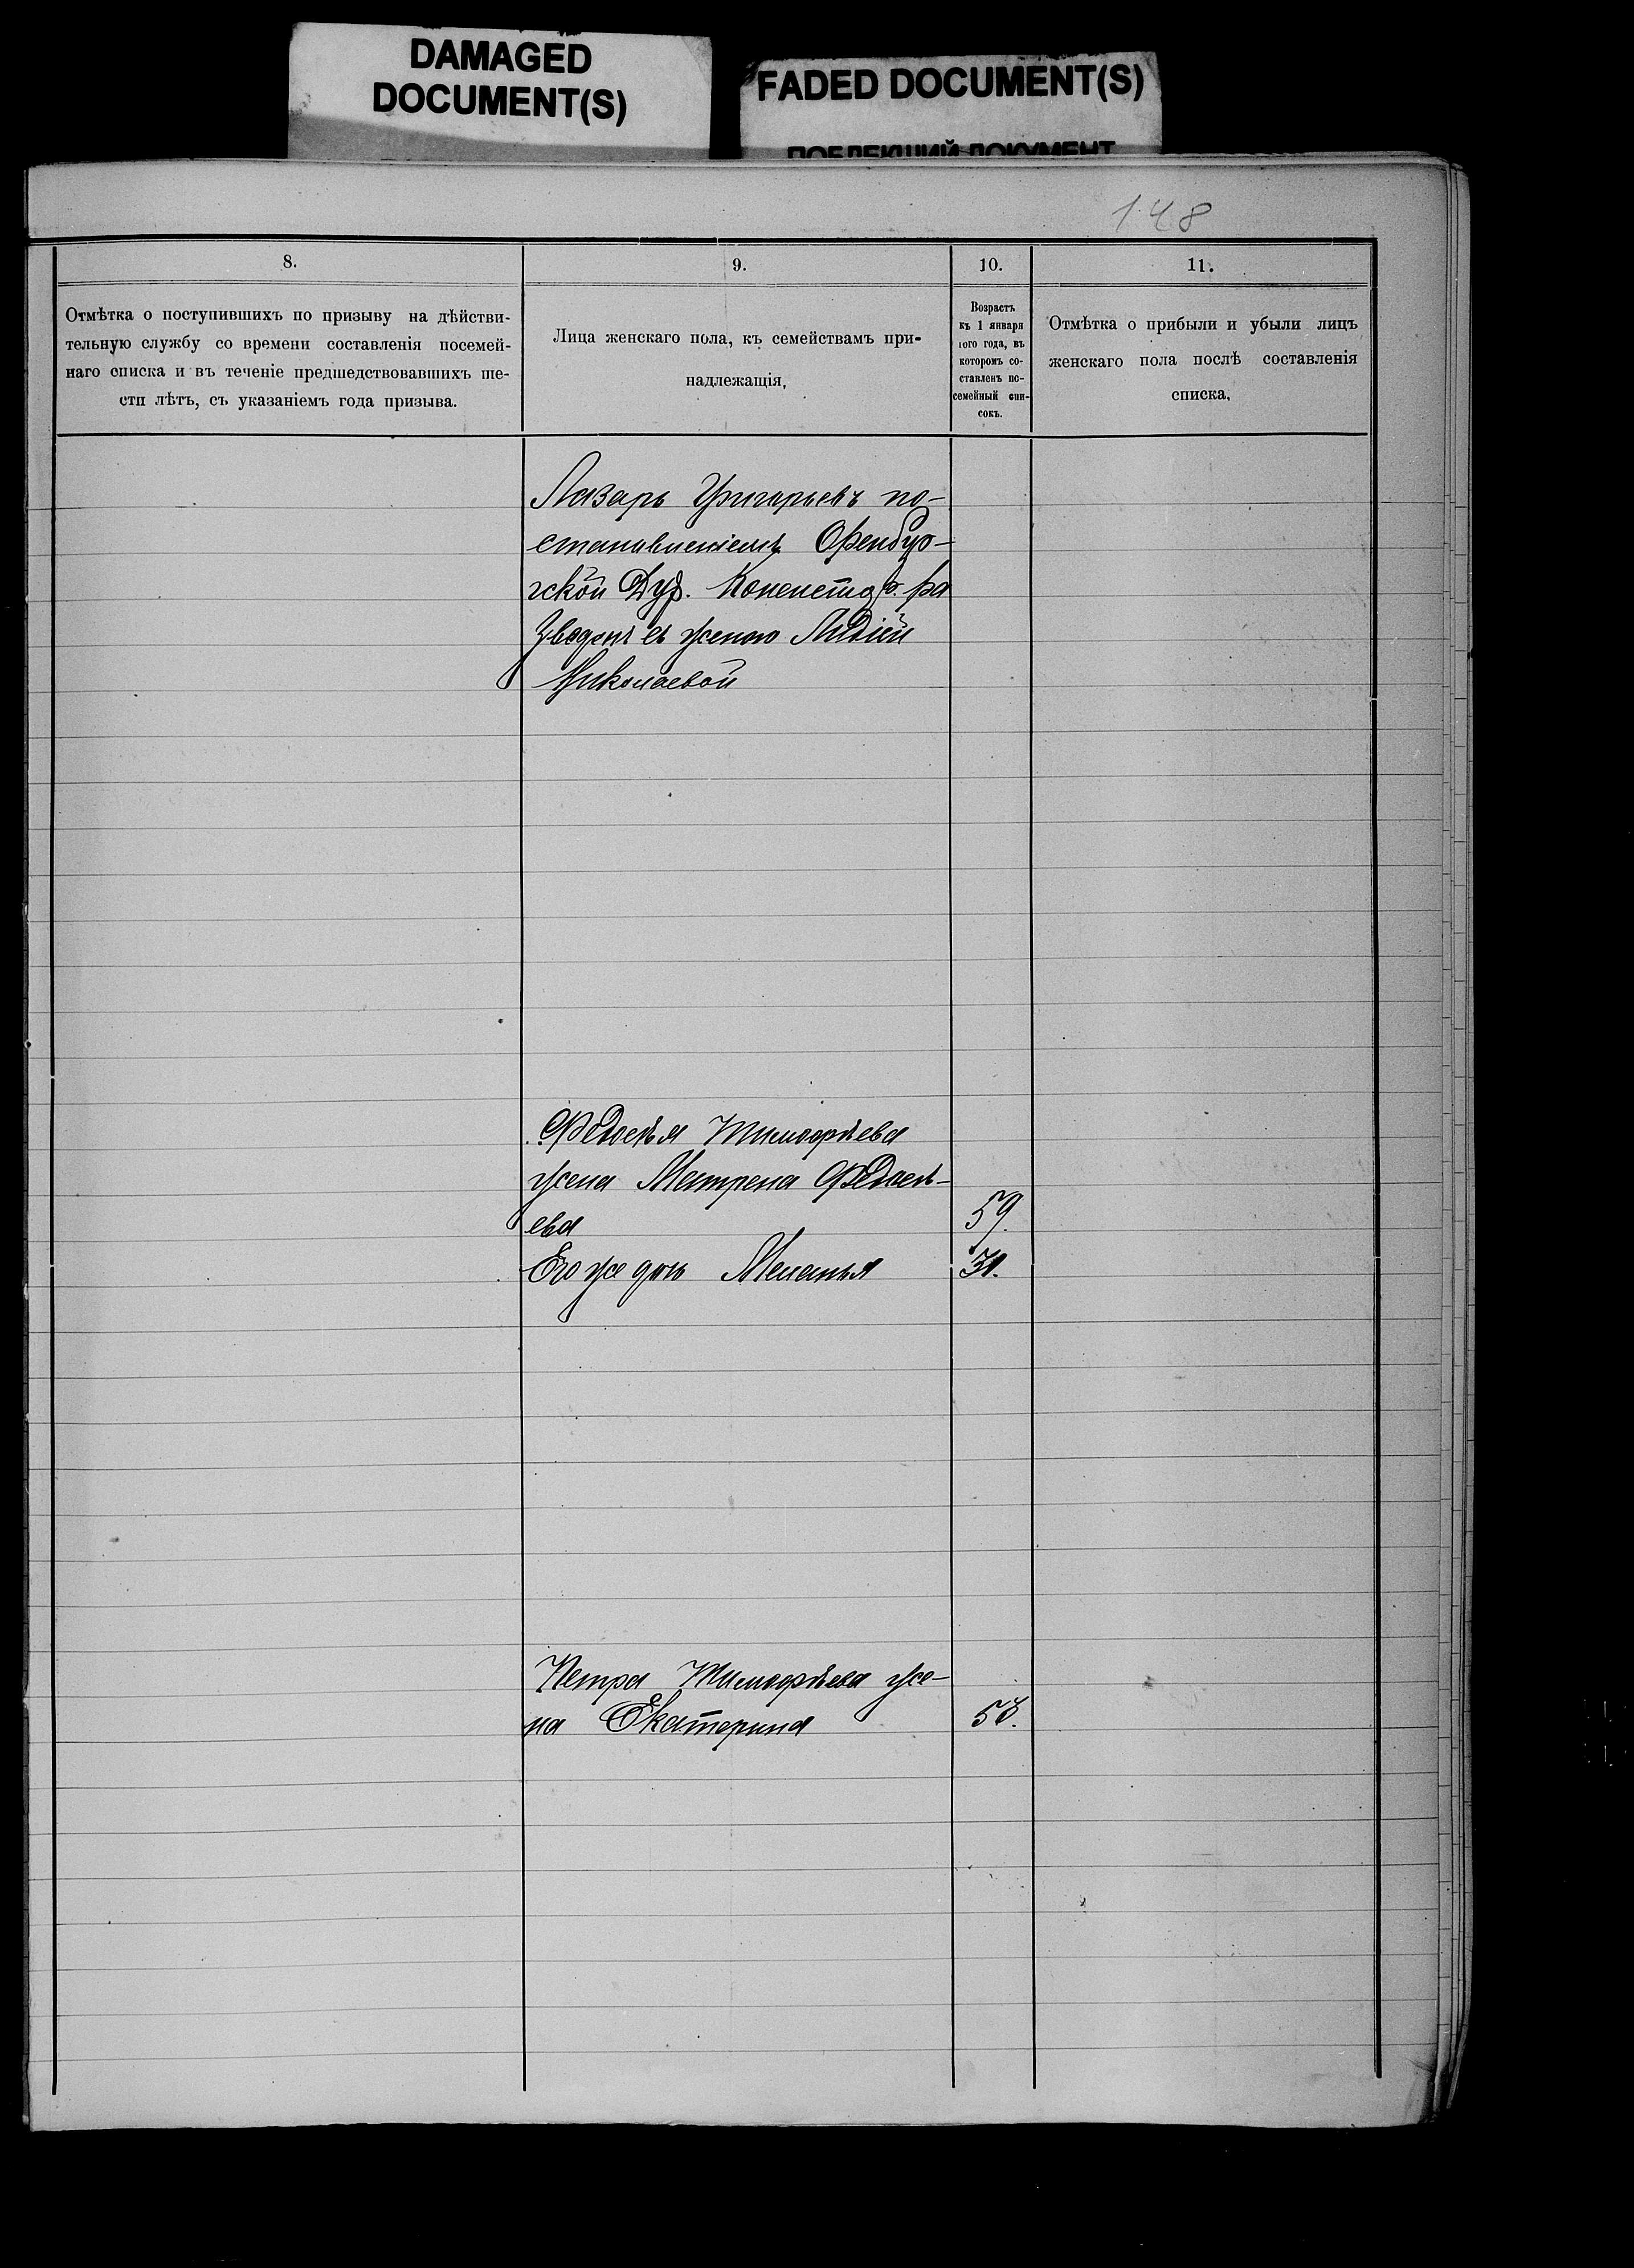 DAMAGED
DOCUMENT(S)
FADED DOCUMENT(S)
ПОБЛЕКШИЙ ДОКУМЕНТ
148
8.
9.
10.
11.
Отмѣтка о поступившихъ по призыву на дѣйстви-
тельную службу со времени составленія посемей-
наго списка и въ теченіе предшедствовавшихъ ше-
сти лѣтъ, съ указаніемъ года призыва.
Лица женскаго пола, къ семействамъ при-
надлежащія,
Возрастъ
къ 1 января
1ого года, въ
которомъ со-
ставленъ по-
семейный спи-
сокъ.
Отмѣтка о прибыли и убыли лицъ
женскаго пола послѣ составленія
списка,
Лазарь Григорьевъ по-
становленіемъ Оренбур-
гской Дух. ра
зведенъ съ женою Лидіей
Николаевой
Федосѣя Тимофѣева
жена Матрена Федосѣ-
ева 59.
Его же дочь Меланья 31.
Петра Тимофѣева же-
на Екатерина 58.